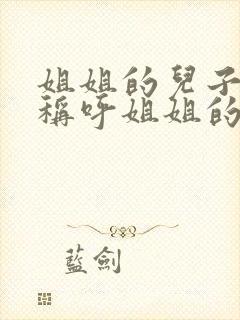 姐姐的兒子
稱呼姐姐的
藍劍